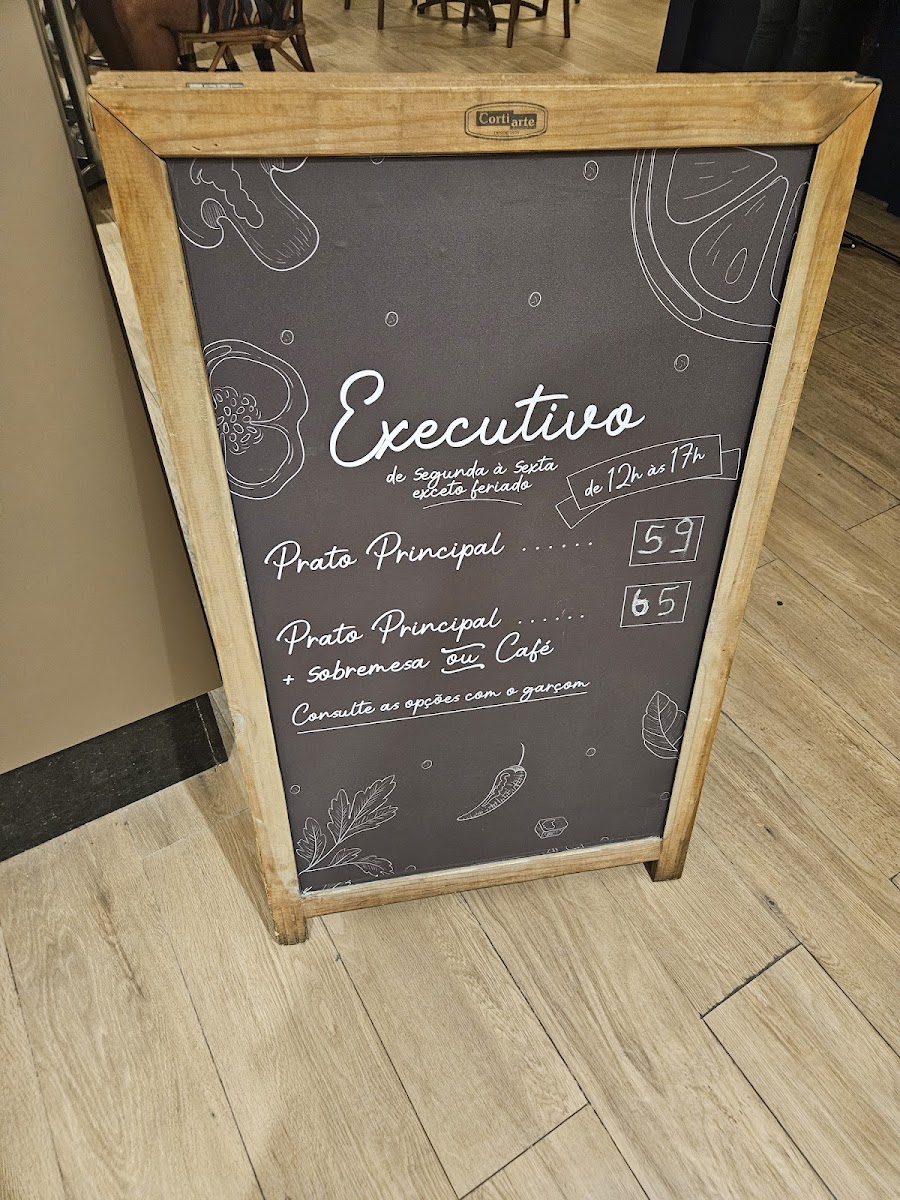 Corti arte
Executivo
de segunda à sexta
exceto feriado
de 12h às 17h
Prato Principal ...... 59
Prato Principal ...... 65
+ sobremesa ou Café
Consulte as opções com o garçom